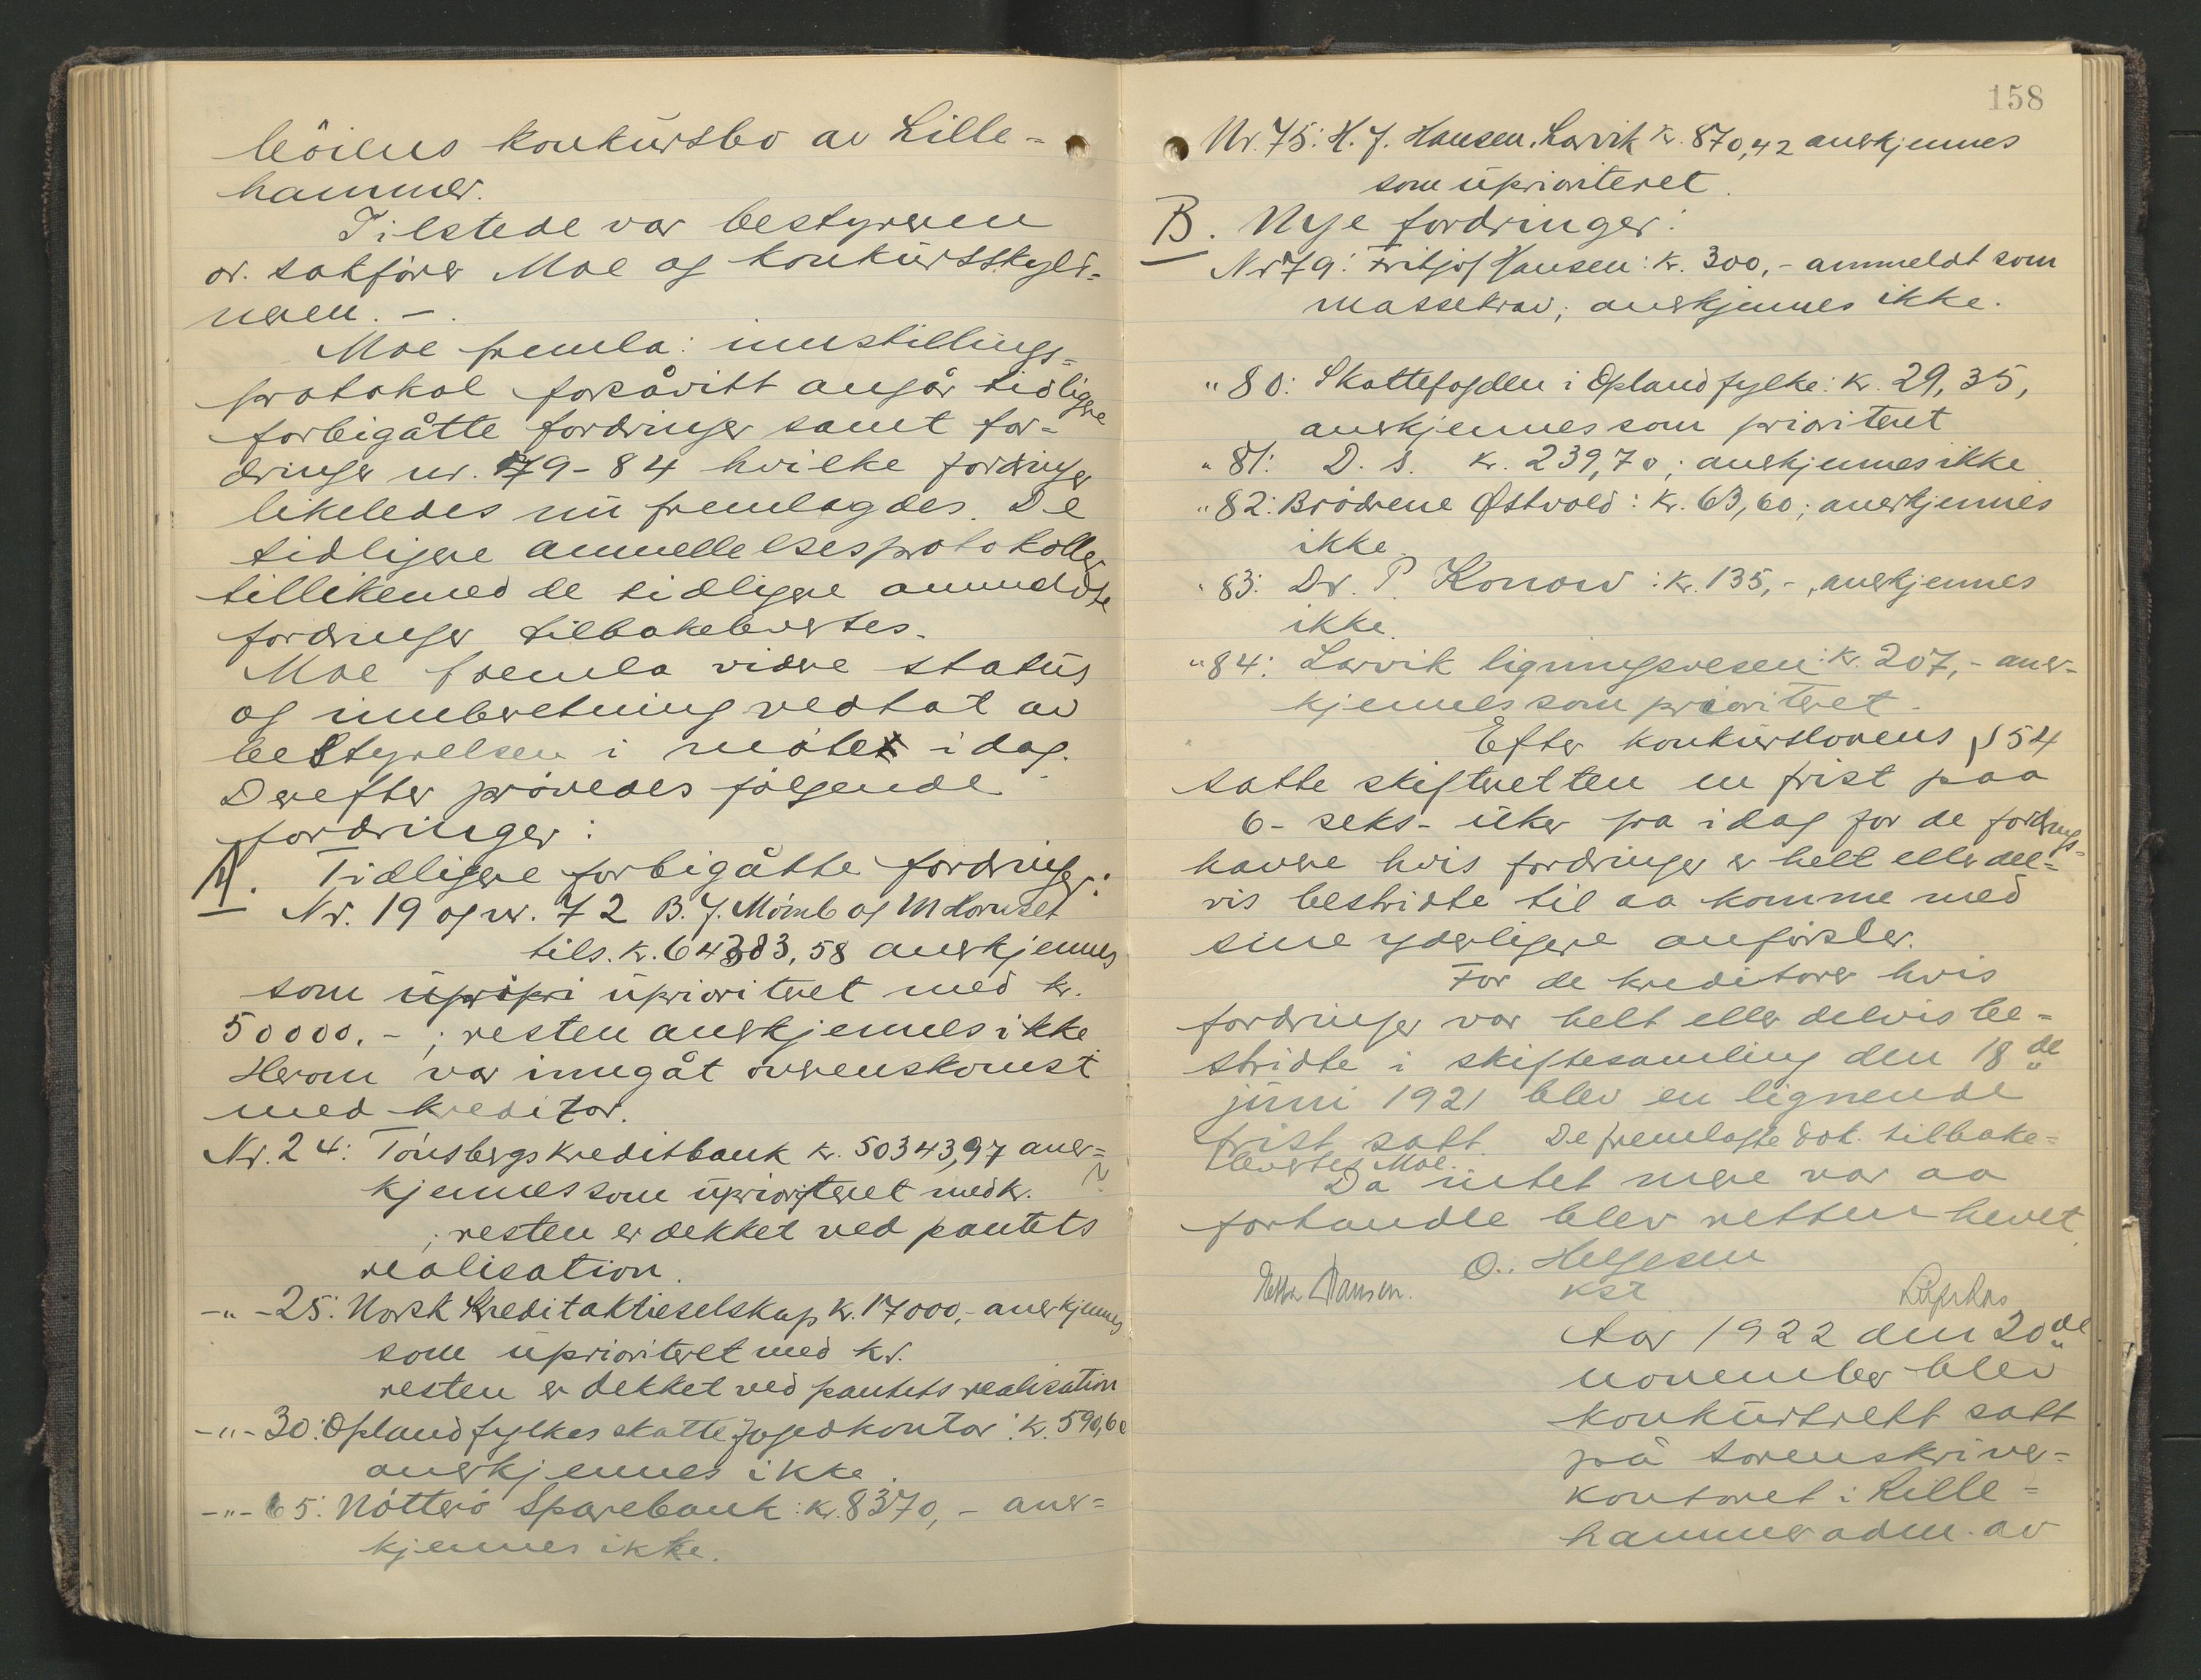 böiens konkursbo av Lille=
hammer.
Tilstede var bestyreren
or. sakfører Moe og konkursskyld=
neren. -.
Moe fremla: innstillings=
protokol forsåvitt angår tidligere
forbigåtte fordringer samt for=
dringer nr. 79-84 hvilke fordringer
likeledes nu fremlagdes. De
tidligere anmeldelsesprotokoller
tillikemed de tidligere anmeldte
fordringer tilbakelevertes.
Moe fremla videre status
og innberetning vedtat av
bestyrelsen i møte i dag.
Derefter prøvedes følgende
fordringer:
A. Tidligere forbigåtte fordringer:
Nr. 19 og nr. 72 B. J. og M
tils. kr. 64383,58 anerkjennes
som upripri uprioriteret med kr.
50000.-; resten anerkjennes ikke
Herom var inngåt overenskomst
med kreditor.
Nr. 24: Tönsbergs kreditbank kr. 50343,97 aner=
kjennes som uprioriteret med kr.
; resten er dekket ved pantets
realisation.
-"-25: Norsk Kreditaktieselskap kr. 17000,- anerkjennes
som uprioriteret med kr.
resten er dekket ved pantets realisation
-"-30: Opland fylkes skattefogedkontor: kr. 590,60
anerkjennes ikke.
-"-65: Nötterö Sparebank: kr. 8370,- aner=
kjennes ikke.
158
Nr. 75: H. J. Hansen, Larvik kr. 870,42 anerkjennes
som uprioriteret.
B. Nye fordringer:
Nr 79: Fritjof Hansen: kr. 300,- anmeldt som
massekrav; anerkjennes ikke.
" 80: Skattefogden i Opland fylke: kr. 29,35,
anerkjennes som prioriteret
" 81: D. s. kr. 239,70; anerkjennes ikke
" 82: Brödrene Østvold: kr. 63,60; anerkjennes
ikke.
" 83: Dr. P. Konow: kr. 135,-, anerkjennes
ikke.
" 84: Larvik ligningsvesen: kr. 207,- aner=
kjennes som prioriteret.
Efter konkurslovens § 54
satte skifteretten en frist paa
6- seks- uker fra idag for de fordrings=
havere hvis fordringer er helt eller del=
vis bestridte til aa komme med
sine yderligere anførsler.
For de kreditorer hvis
fordringer var helt eller delvis be=
stridte i skiftesamling den 18de
juni 1921 blev en lignende
frist satt. De fremlagte dok. tilbake=
levertes Moe.
Da intet mere var aa
forhandle blev retten hevet.
O. Helgesen
kst
Hansen.
Aar 1922 den 20de
november blev
konkursrett satt
på sorenskriver=
kontoret i Lille=
hammer adm. av